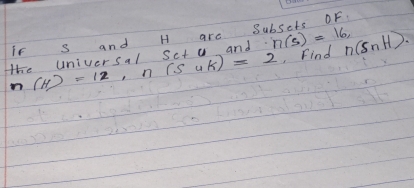 IF S and H are Subsets OF
the universal Set U and n(S) = 16,
n(H) = 12, n (S uk) = 2. Find n(SnH).